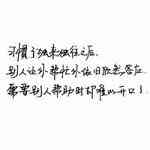 习惯了独来独往之后,
别人让你帮忙你依旧欣然答应,
需要别人帮助时却难以开口!